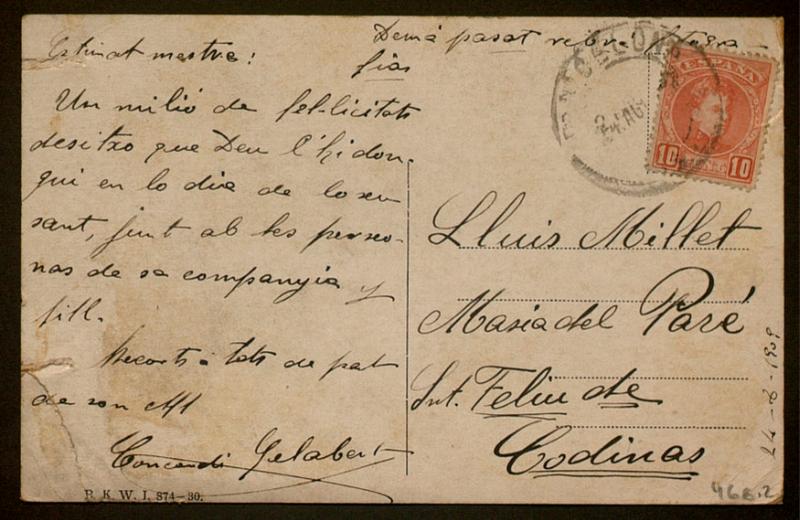 Demá pasat rebrá
fias
Estimat mestre:
Un milió de fel-licitats
desitxo que Deu l'hi don-
gui en lo dia de lo seu
sant, junt ab les perso-
nas de sa companyia y
fill.
Recorts a tots de pat
de son
Concordi Gelabert
R. K. W. I. 874-30.
BARCELONA
24 AGO
ESPAÑA
10 10
Lluis Millet
Masia del Paré
Snt. Feliu de
Codinas
24-8-1909
466.2